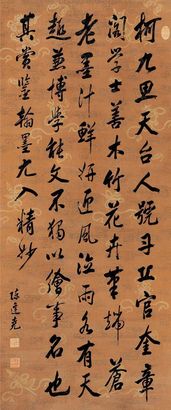 柯九思天台人號丹丘官奎章
閣學士善木竹花卉筆端蒼
老墨汁鮮妍迎風泣雨各有天
趣兼博學能文不獨以繪事名也
其賞鑒翰墨尤入精妙